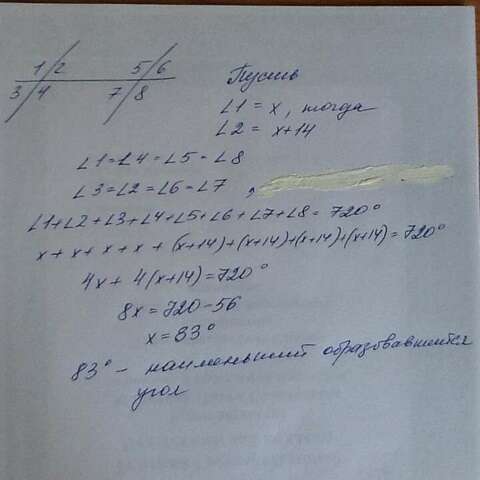 1/2 5/6
3/4 7/8
Пусть
∠1 = x, тогда
∠2 = x+14
∠1=∠4=∠5=∠8
∠3=∠2=∠6=∠7,
∠1+∠2+∠3+∠4+∠5+∠6+∠7+∠8=720°
x+x+x+x+(x+14)+(x+14)+(x+14)+(x+14)=720°
4x+4(x+14)=720°
8x=720-56
x=83°
83° – наименьший образовавшийся
угол